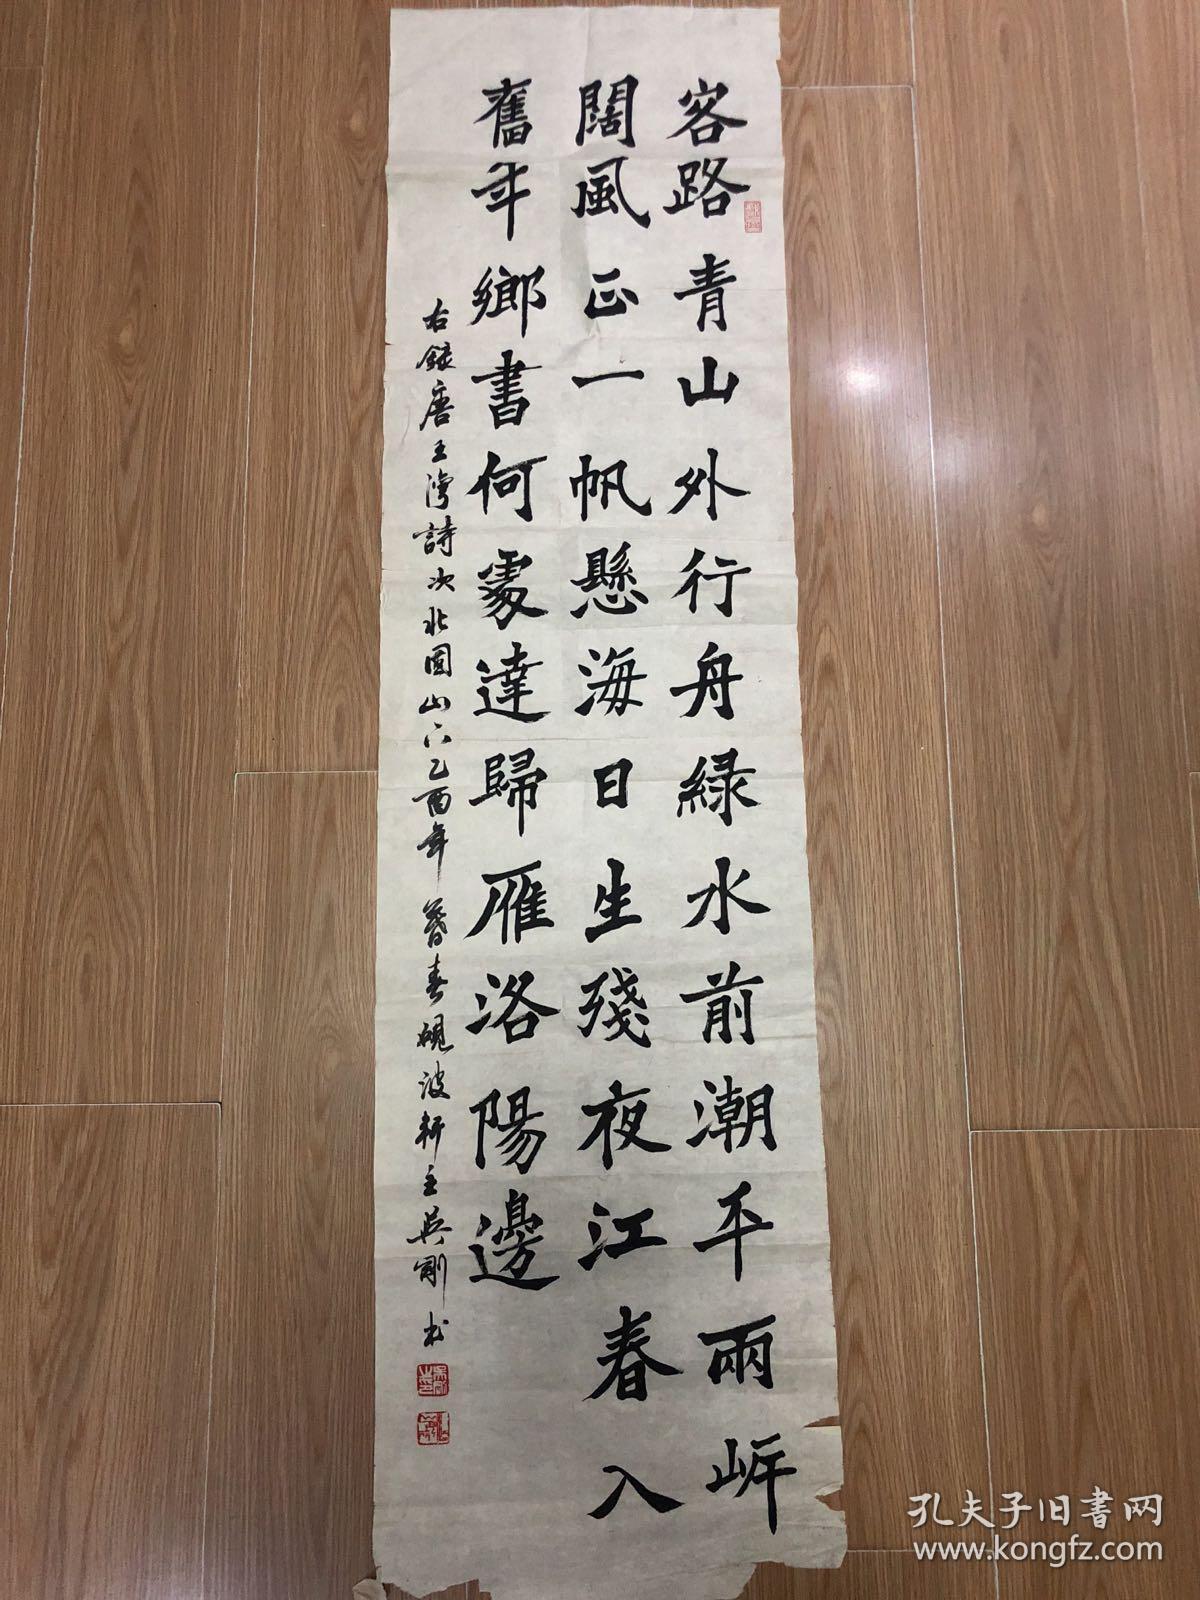 客路青山外行舟緑水前潮平兩岍
闊風正一帆懸海日生殘夜江春入
舊年鄉書何處達歸雁洛陽邊
右錄唐王灣詩次北固山下乙酉年暮春硯波軒主吳剛书
孔夫子旧書网
www.kongfz.com